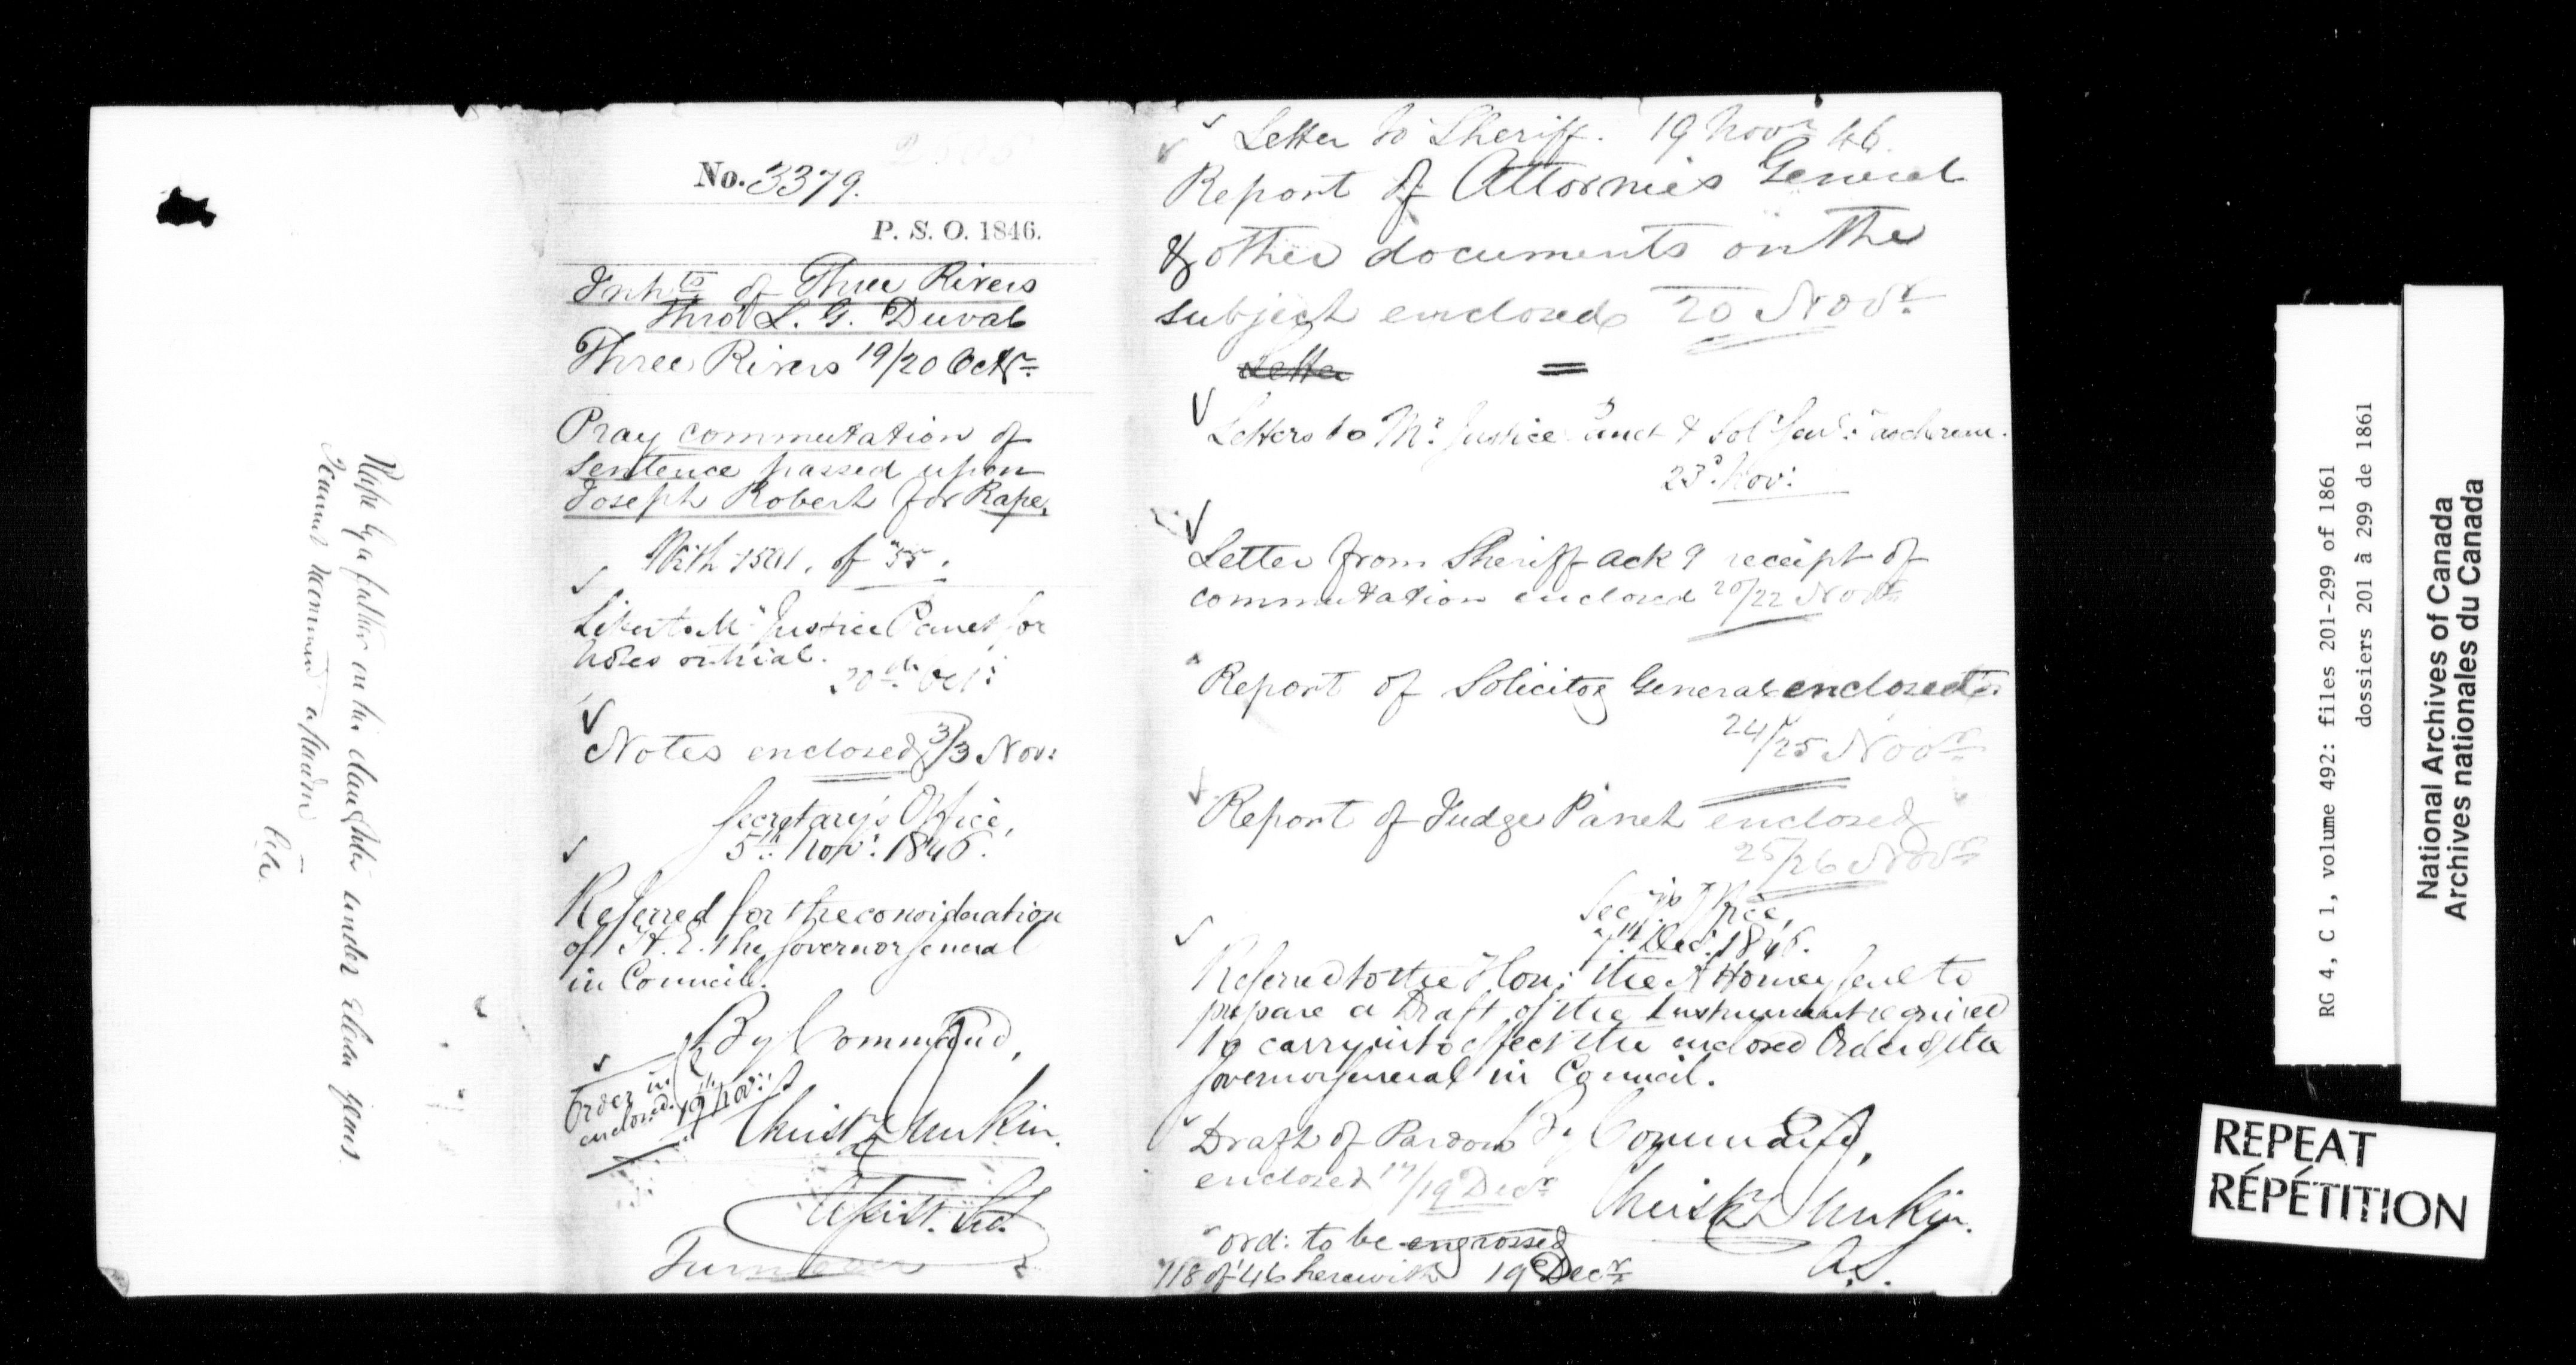 Rape by a father on his daughter under eleven years.
I cannot recommend a pardon
No. 3379.
P. S. O. 1846.
Inhts of Three Rivers
thro' L. G. Duval
Three Rivers 19/20 Octr.
Pray commutation of
sentence passed upon
Joseph Robert for Rape.
With 1501. of "55".
to Mr Justice Panet for
notes on trial.
20th Oct:
Notes enclosed 3/3 Nov:
Secretary's Office,
5th Nov: 1846.
Referred for the consideration
of H. E. the Governor General
in Council.
By Command,
Order in
enclosed. 19 Nov:
Christr Dunkin.
Assist. Sec.
Turn over
Letter to Sheriff. 19 Novr 46.
Report of Attornies General
& other documents on the
subject enclosed 20 Novr.
Letter
Letters to Mr. Justice Panet & Sol. Genl.
23d. Nov:
Letter from Sheriff ackg receipt of
commutation enclosed 20/22 Novr.
Report of Solicitor General enclosed
24/25 Novr
Report of Judge Panet enclosed
25/26 Novr
Secy's Office,
7th Dec. 1846.
Referred to the Hon: the Attorney Genl to
prepare a Draft of the Instrument required
to carry into effect the enclosed Order of the
Governor General in Council.
Draft of Pardon By Command,
enclosed 17/19 Decr
Christr Dunkin.
A.S.
ord: to be engrossed
118 of '46 herewith 19 Decr
RG 4, C 1, volume 492: files 201-299 of 1861
dossiers 201 à 299 de 1861
National Archives of Canada
Archives nationales du Canada
REPEAT
RÉPÉTITION